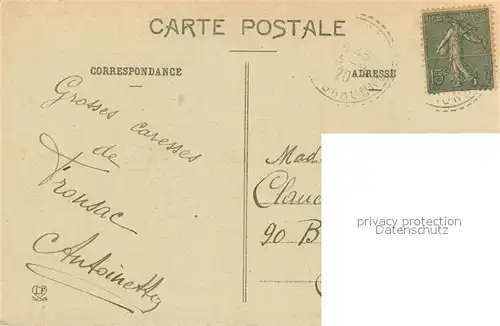 CARTE POSTALE
CORRESPONDANCE
ADRESSE
15
Grosses caresses
de
Fronsac
Antoinette
Mad
Clauc
90 B
privacy protection
Datenschutz